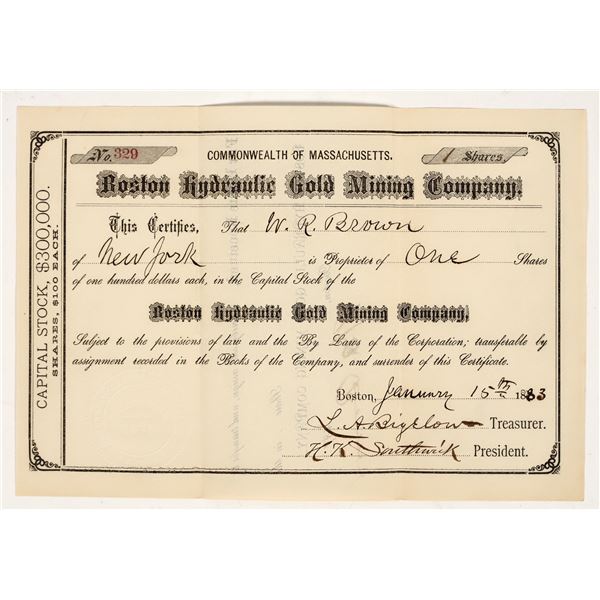 No. 329
COMMONWEALTH OF MASSACHUSETTS.
1 Shares.
Boston Hydraulic Gold Mining Company.
This Certifies, That W. R. Brown
of New York is Proprietor of One Shares
of one hundred dollars each, in the Capital Stock of the
Boston Hydraulic Gold Mining Company,
Subject to the provisions of law and the By Laws of the Corporation; transferable by
assignment recorded in the Books of the Company, and surrender of this Certificate.
Boston, January 15th 1883
L. A. Bigelow Treasurer.
H. K. Southwick President.
CAPITAL STOCK, $300,000.
SHARES, $100 EACH.